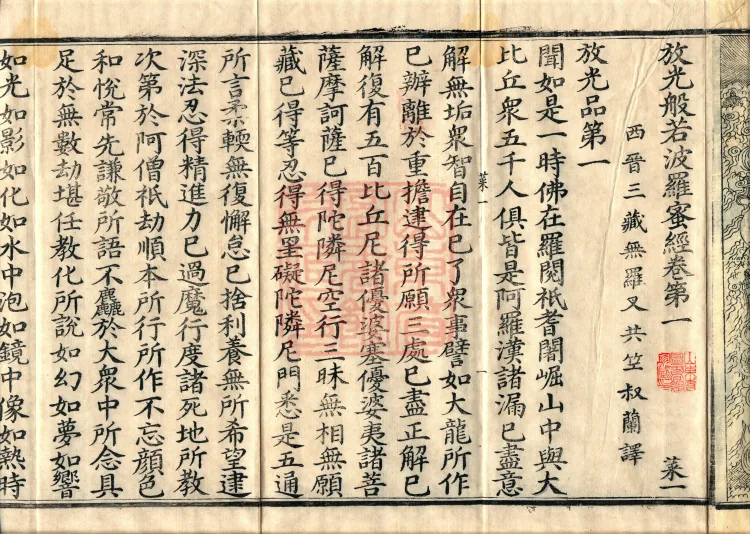 放光般若波羅蜜經卷第一　菜一
西晉三藏無羅叉共竺叔蘭譯
放光品第一
聞如是一時佛在羅閱祇耆闍崛山中與大
比丘眾五千人俱皆是阿羅漢諸漏已盡意
菜一
一
解無垢眾智自在已了眾事譬如大龍所作
已辦離於重擔逮得所願三處已盡正解已
解復有五百比丘尼諸優婆塞優婆夷諸菩
薩摩訶薩已得陀隣尼空行三昧無相無願
藏已得等忍得無罣礙陀隣尼門悉是五通
所言柔輭無復懈怠已捨利養無所希望逮
深法忍得精進力已過魔行度諸死地所教
次第於阿僧祇劫順本所行所作不忘顏色
和悅常先謙敬所語不麤於大眾中所念具
足於無數劫堪任教化所說如幻如夢如響
如光如影如化如水中泡如鏡中像如熱時